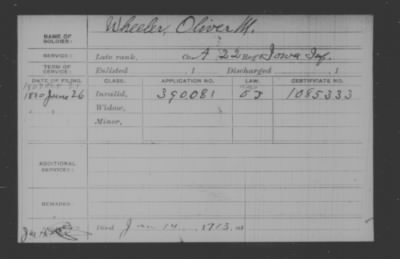 NAME OF SOLDIER: Wheeler, Oliver M.
SERVICE: Late rank, Co. A 22 Reg't Iowa Inf.
TERM OF SERVICE: Enlisted , 1 Discharged , 1
DATE OF FILING. CLASS. APPLICATION NO. LAW. CERTIFICATE NO.
1880 June 26 Invalid, 390081 1085333
Widow,
Minor,
ADDITIONAL SERVICES:
REMARKS:
Died 1913, at